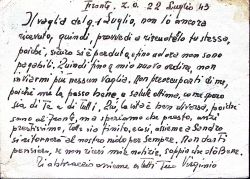 Fronte, z.o. 22 Luglio 43
Il vaglia del 9 Luglio, non l'ò ancora
ricevuto, quindi, provvedi a ricuotello tu stessa,
poiché, sicuro si è perduto, e fino ad ora non sono
pagabili. Quindi fino a mio nostro ordine, non
inviarmi più nessun vaglia. Non preoccuparti di me,
poiché me la passo bene, e salute ottima, come spero
sia di Te e di tutti. Qui la vita è ben diversa, poiché
sono al fronte, ma speriamo che presto, anzi
prestissimo, tutto sia finito, e così, assieme a Sandro
si ritornerà al nostro nido per sempre. Non darti
pensiero, se non ricevi mie notizie, sappi che sto bene.
Ti abbraccio assieme a tutti Tuo Virginio